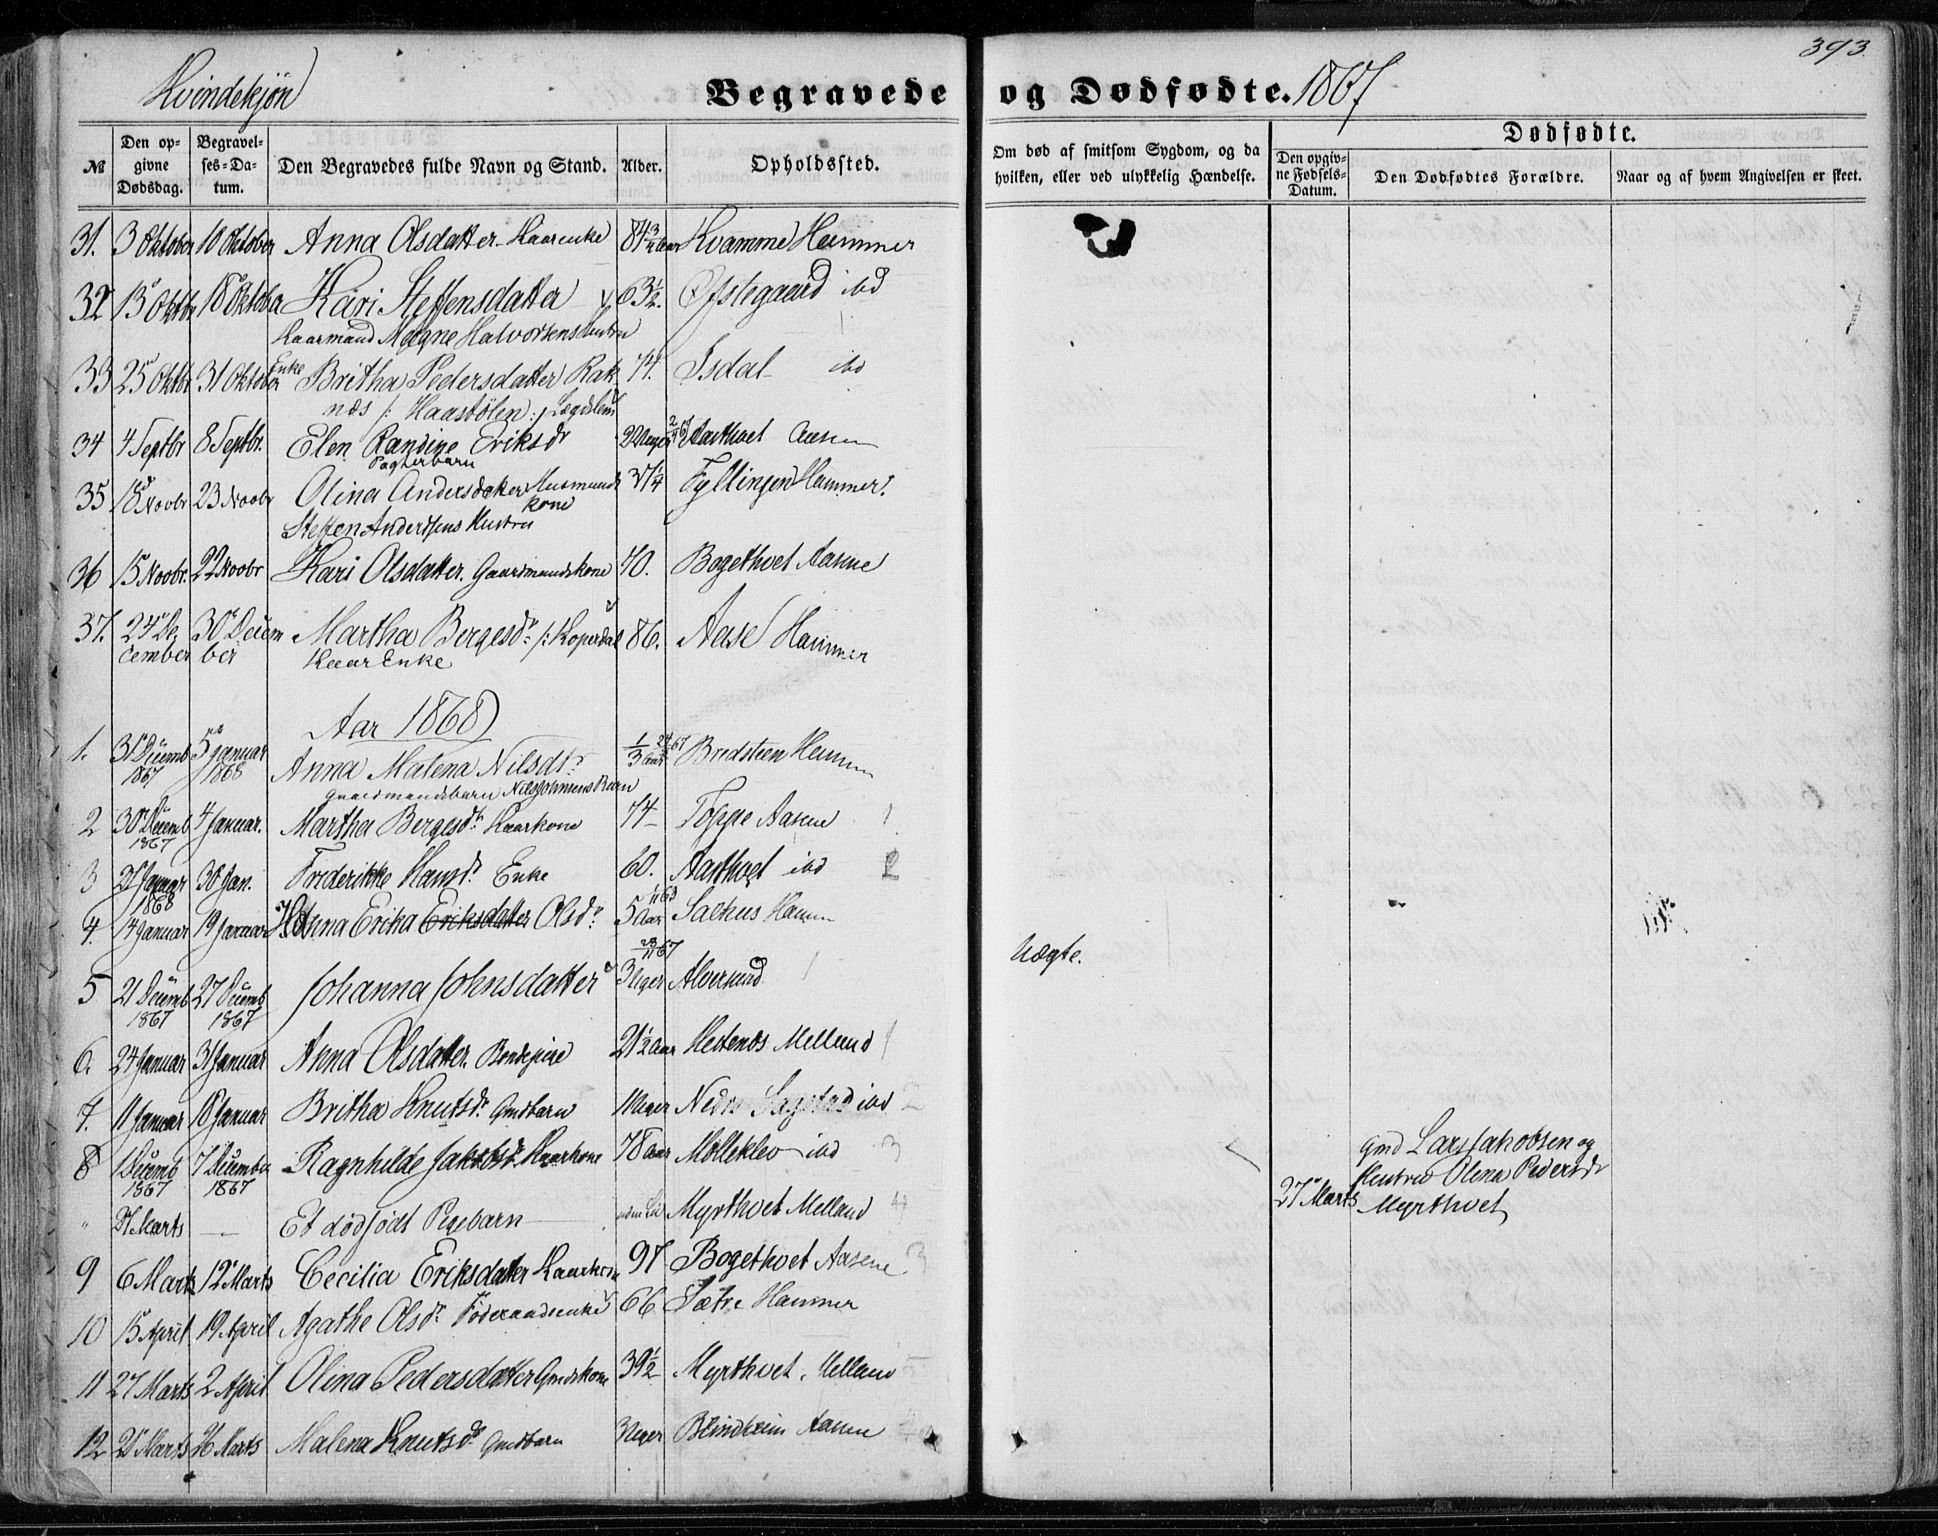 393.
Kvindekjøn
Begravede og Dødfødte. 1867
№
Den opgivne Dødsdag.
Begravelses-Datum.
Den Begravedes fulde Navn og Stand.
Alder.
Opholdssted.
Om død af smitsom Sygdom, og da hvilken, eller ved ulykkelig Hændelse.
Dødfødte.
Den opgivne Fødsels-Datum.
Den Dødfødtes Forældre.
Naar og af hvem Angivelsen er skeet.
31. 3 Oktober 10 Oktober Anna Olsdatter Kaarenke 84 3/4 Aar Kvamme Hammer
32 13 Oktbr 18 Oktober Kari Steffensdatter 63 1/2. Øfstegaard ibd
Kaarmand Mogne Halvorsens Hustru
33 25 Oktbr 31 Oktober Enke Britha Pedersdatter Rak 74. Isdal ibd
næs /: Haastølen :/ Lægdslem
34 4 Septbr 8 Septbr. Elen Randine Eriksdr 2 Uger Aastvet Aasene
35 18 Novbr 23 Novbr Olina Andersdatter Husmands 37 1/4 Fyllingen Hammer.
kone
Steffen Andersens Hustru
36 15 Novbr. 22 Novbr Kari Olsdatter. Gaardmandskone 40. Bogethvet Aasene
37. 24 De 30 Decem Martha Bergesdr /: Koperdal 86. Aase Hammer
cember ber Kaar Enke
Aar 1868
1. 31 Decemb 5 Januar Anna Malena Nilsdr. 1/3 Aar Bredsteen Hammer
1867 1868 Gaardmandsbarn Nils Johnsens Barn
2 30 Decemb 4 Januar. Martha Bergesdr. Kaarkone 74 Toppe Aasene
1867
3 21 Januar 30 Jan. Frederikke Hansdr. Enke 60. Aasthvet ibd
1868
4. 14 Januar 19 Januar Hanna Erika Eriksdatter Olsdr. 5 Aar Salhus Hamm
5 21 Decemb 27 Decemb Johanna Johnsdatter 3 Uger Alversund Uægte.
1867 1867
6. 24 Januar 31 Januar Anna Olsdatter. Bondepige 21 1/2 Aar Hestenæs Melland
7. 11 Januar 18 Januar Britha Knutsdr. Gmdbarn 1 Uger Nedre Sagstad ibd
8 1 Decemb 7 Decembr Ragnhilde Jakobsdr. Kaarkone 78 Aar Mølleklev ibd
1867 1867
" 27 Marts Et dødfødt Pigebarn Myrthvet Melland 27 Marts Gmd Lars Jakobsen og
Hustru Olina Pedersdr
Myrthvet
9 6 Marts 12 Marts Cecilia Eriksdatter Kaarkone 97 Bogethvet Aasene
10 15 April 19 April Agathe Olsdr. Føderaadsenke 66 Sætre Hammer
11 27 Marts 2 April Olina Pedersdatter Gmdskone 39 1/2 Myrthvet. Melland
12 21 Marts 26 Marts Malena Knutsdr. Gmdbarn 3 Uger Blindheim Aasene